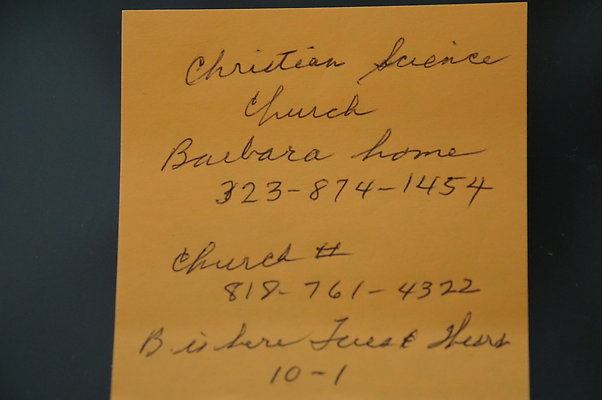 Christian Science
Church
Barbara home
323-874-1454
Church #
818-761-4322
B is here Tues & Thurs
10-1